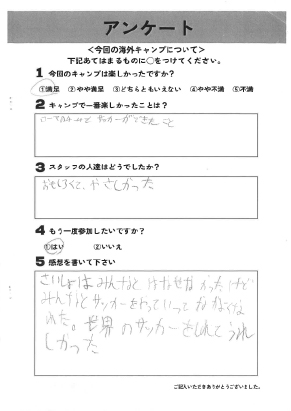 アンケート
＜今回の海外キャンプについて＞
下記あてはまるものに○をつけてください。
1 今回のキャンプは楽しかったですか？
①満足 ②やや満足 ③どちらともいえない ④やや不満 ⑤不満
2 キャンプで一番楽しかったことは？
サッカーができたこと
3 スタッフの人達はどうでしたか？
おもしろくて、やさしかった
4 もう一度参加したいですか？
①はい ②いいえ
5 感想を書いて下さい
さいしょはみんなと はなせなかったけど
みんなとサッカーをやっていってなかよくな
れた。世界のサッカーをしれてうれ
しかった
ご記入いただきありがとうございました。